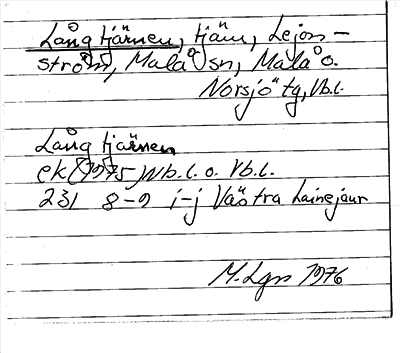 Långtjärnen, tjärn, Lejon-
ström, Malå sn, Malå o.
Norsjö tg, Vb.l.
Långtjärnen
ek (1975) Nb.l. o. Vb.l.
231 8-9 i-j Västra Lainejaur
M. Lgn 1976